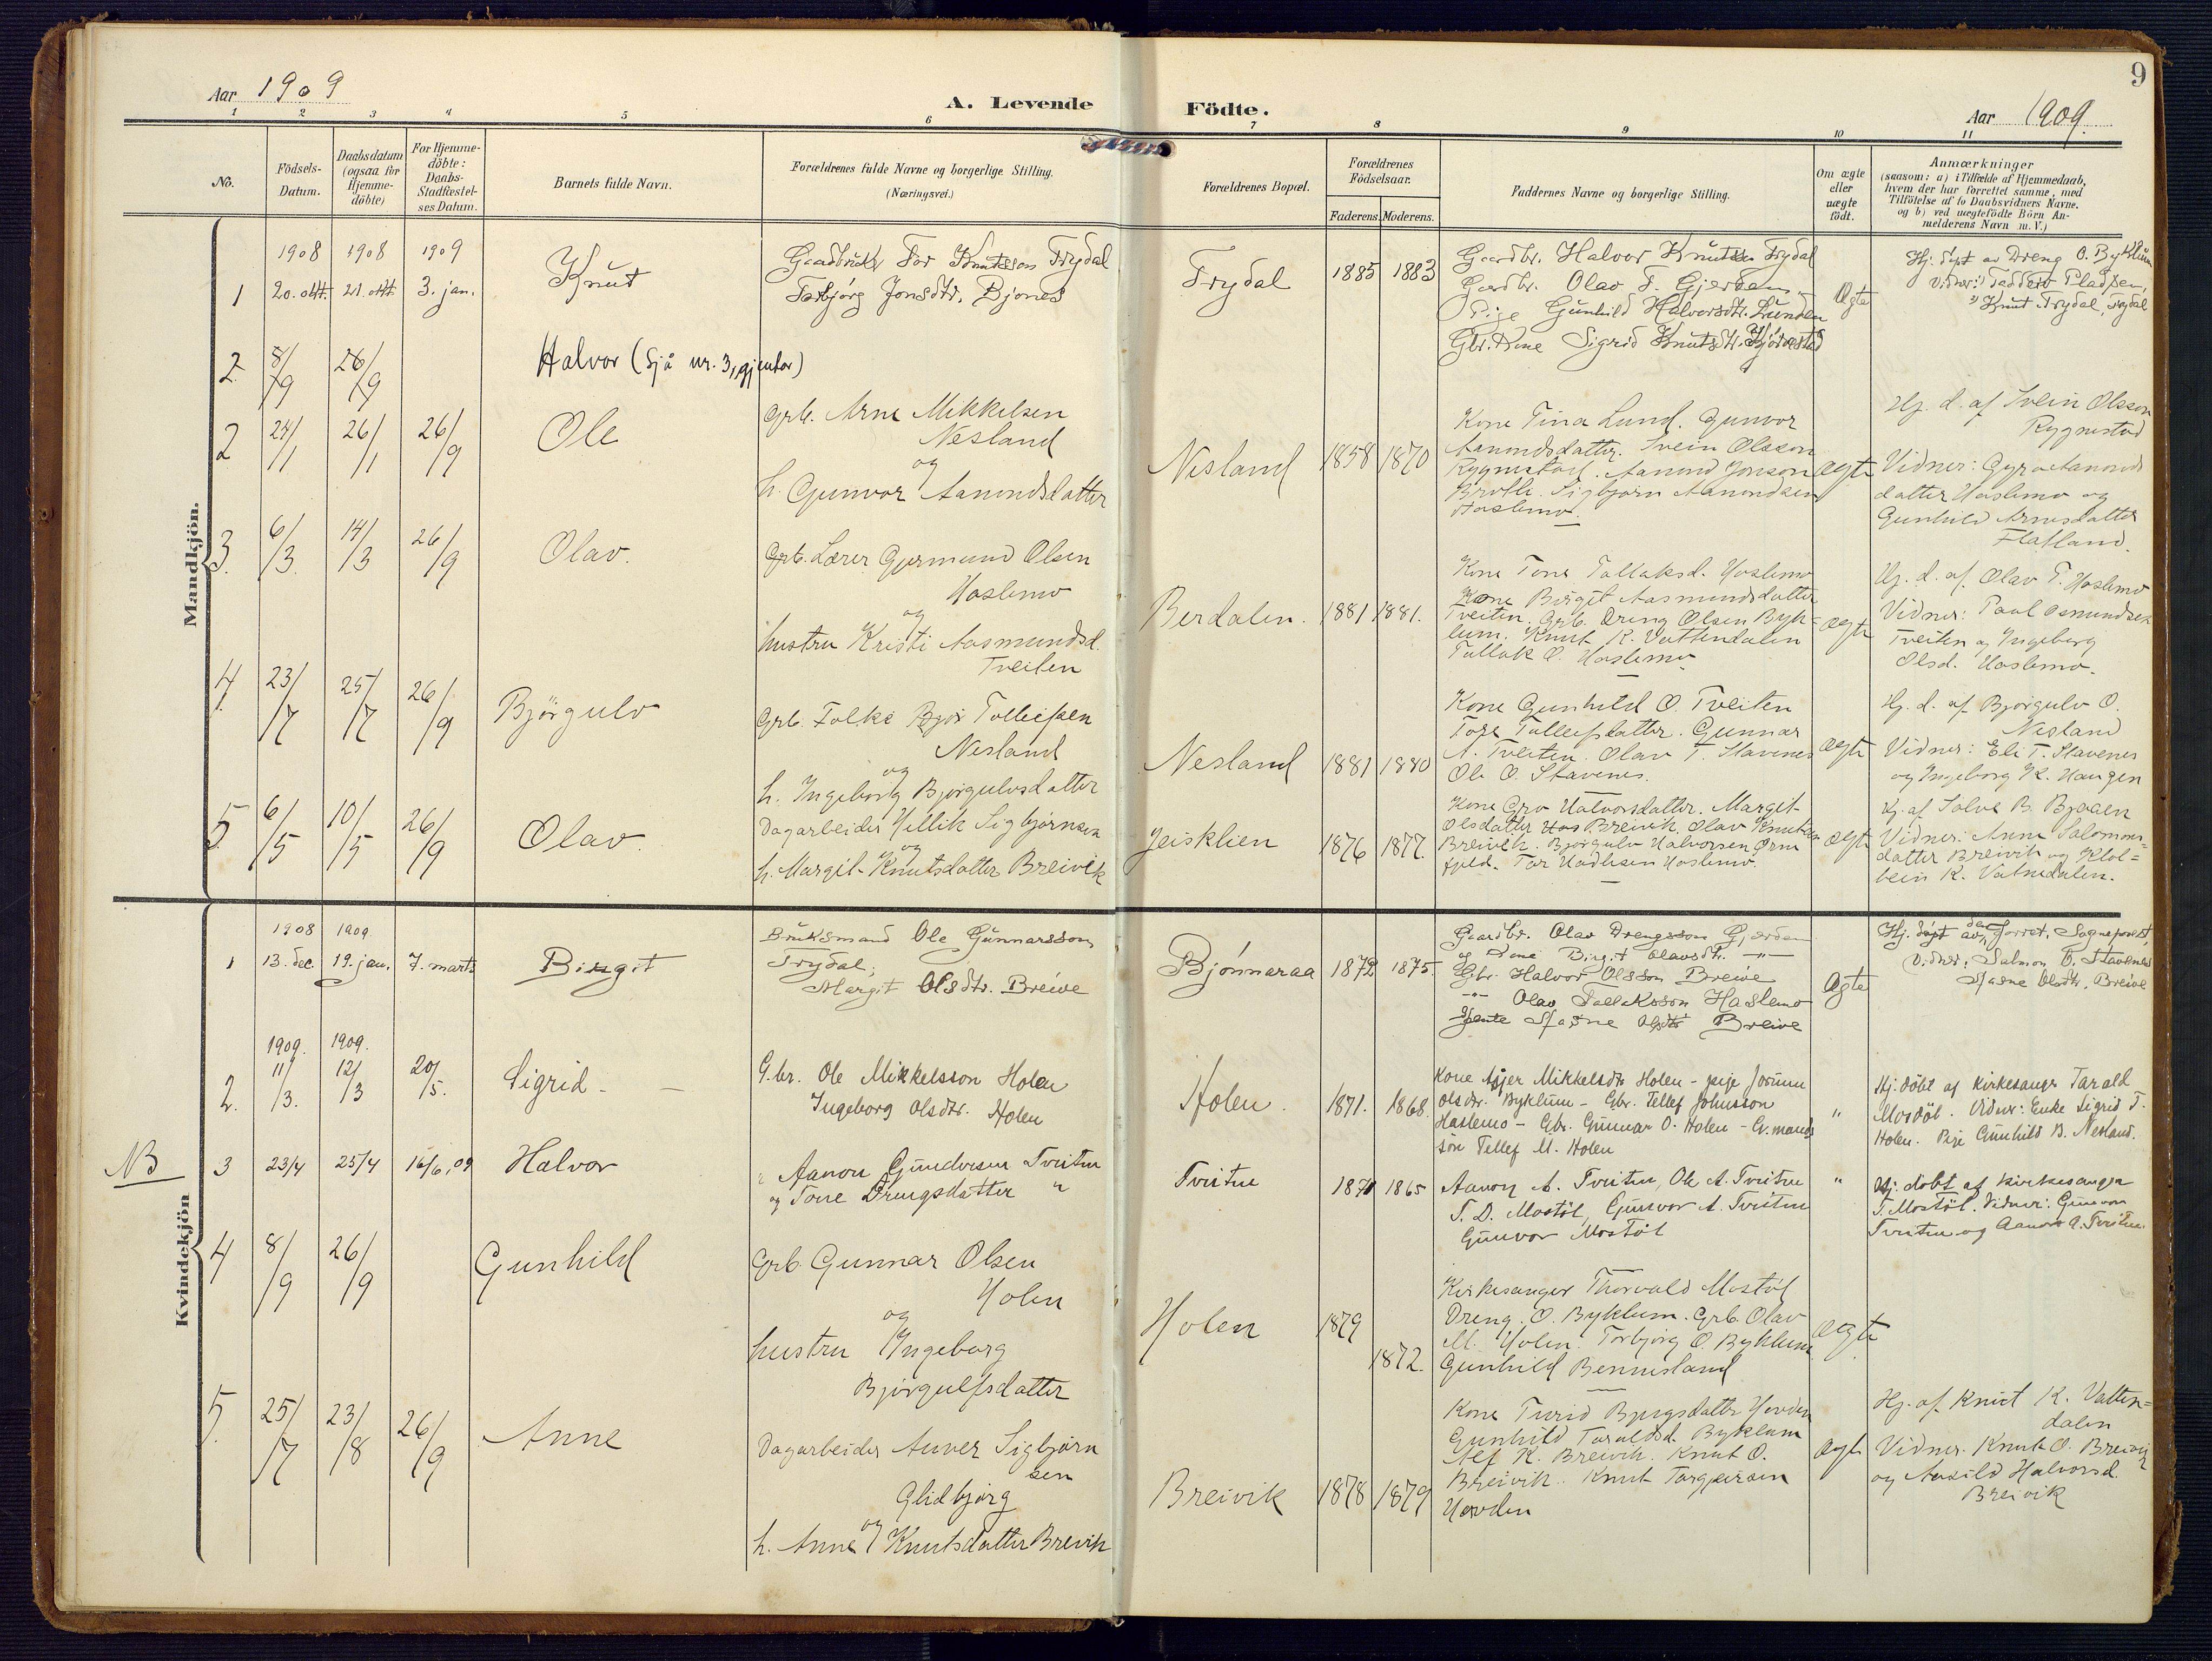 Aar 1909
A. Levende
Födte.
Aar 1909.
9
1 2 3 4 5 6 7 8 9 10 11
No.
Födsels-
Datum.
Daabsdatum
(ogsaa for
Hjemme-
döbte)
For Hjemme-
döbte:
Daabs-
Stadfæstel-
ses Datum.
Barnets fulde Navn.
Forældrenes fulde Navne og borgerlige Stilling.
(Næringsvei.)
Forældrenes Bopæl.
Forældrenes
Födselsaar.
Faderens. Moderens.
Faddernes Navne og borgerlige Stilling.
Om ægte
eller
uægte
födt.
Anmærkninger
(saasom: a) i Tilfælde af Hjemmedaab,
hvem der har forrettet samme, med
Tilföielse af to Daabsvidners Navne.
og b) ved uægtefödte Börn An-
melderens Navn m. V.)
Mandkjön.
1
1908
20. okt.
1908
21. okt.
1909
3. jan.
Knut
Gaardbruker Tor Knutsson Trydal
Torbjørg Jonsdtr. Bjones
Trydal
1885 1883
Gaardbr. Halvor Knutsson Trydal
Gaardbr. Olav T. Gjerden
Pige Gunhild Halvorsdtr. Lunden
Gbr. Kone Sigrid Knutsdtr.
Ægte
Hj. døpt av Dreng O. Byklum
Vidner: Tadder Pladsen,
" Knut Trydal, Trydal
2
8/9
26/9
Halvor (Sjå nr. 3, gjentor)
2
24/1
26/1
26/9
Ole
Grb. Arne Mikkelsen
Nesland
og
h. Gunvor Aanondsdatter
Nesland
1858 1870
Kone Tina Lund. Gunvor
Aanondsdatter. Svein Olsson
Rygnestad. Aanond Jonson
Brotte. Sigbjørn Aanondsen
Hoslemo.
ægte
Hj. d. af Svein Olsson
Rygnestad
Vidner: Gyro Aanonds
datter Hoslemo og
Gunhild Arnesdatter
Flatland.
3.
6/3
14/3
26/9
Olav.
Grb. Lærer Gjermund Olsen
Hoslemo
og
hustru Kristi Aasmundsd.
Tveiten
Berdalen.
1881 1881.
Kone Tone Tallaksd. Hoslemo
Kone Birgit Aasmundsdatter
Tveiten. Grb. Dreng Olsen Byk=
lum. Knut K. Vattendalen
Tallak O. Hoslemo.
ægte
Hj. d. af Olav T. Hoslemo
Vidner: Paal Osmundsen
Tveiten og Ingeborg
Olsd. Hoslemo.
4.
23/7
25/7
26/9
Bjørgulv
Grb. Folke Tollefsen
Nesland
og
h. Ingeborg Bjørgulvsdatter
Nesland
1881 1880
Kone Gunhild O. Tveiten
Tore Tallefsdatter. Gunnar
A. Tveiten. Olav T. Stavenes
Ole O. Stavenes.
ægte
Hj. d. af Bjørgulv O.
Nesland
Vidner: Eli T. Stavenes
og Ingeborg K. Haugen
5.
6/5
10/5
26/9
Olav.
Dagarbeider Hellik Sigbjørnsen
og
h. Margit Knutsdatter Breivik
Jeisklien
1876 1877.
Kone Gro Halvorsdatter. Margit
Olsdatter Breivik, Olav Knutsen
Breivik. Bjørgulv Halvorsen Ørne
fjeld. Tor Hadlesen Hoslemo.
ægte
Hj. af Salve B. Bjaaen
Vidner: Anne Salomons=
datter Breivik og Klol=
bein K. Vatnedalen.
Kvindekjön
1
1908
13. dec.
1909
19. jan.
7. marts
Birgit
Bruksmand Ole Gunnarsson
Trydal;
Margit Olsdtr. Breive
Bjønnaraa
1872. 1875.
Gaardbr. Olav Drengsson Gjerden
og Kone Birgit Olavsdtr. —"—
Gbr. Halvor Olsson Breive
—"— Olav Tallaksson Haslemo
Jente Stasne Olsdtr Breive
Ægte
Hj. døpt av den forret. Sogneprest,
Vidner: Salmon T. Stavenes
Stasne Olsdtr, Breive
2.
1909.
11/3.
1909.
12/3
20/5.
Sigrid —
G.br. Ole Mikkelsson Holen
Ingeborg Olsdtr. Holen
Holen.
1871. 1868.
Kone Asjer Mikkelsdtr Holen - pige Jorunn
Olsdtr. Byklum - Gbr. Tellef Johnsson
Haslemo - Gbr. Gunnar O. Holen - G.mands
søn Tellef M. Holen
"
Hj. döbt af kirkesanger Tarald
Mosdöl. Vidner: Enke Sigrid T.
Holen. Pige Gunhild B. Nesland.
NB
3
23/4
25/4
16/6, 09
Halvor
" Aanon Gundersen Tveiten
og Tone Drengsdatter "
Tveiten
1871 1865
Aanon A. Tveiten, Ole A. Tveiten
T. D. Mostöl, Gunvor A. Tveiten
Gunvor Mostöl
"
Hj. döbt af kirkesanger
T. Mostöl. Vidner: Gunvor
Tveiten og Aanon A. Tveiten.
4
8/9
26/9
Gunhild
Grb. Gunnar Olsen
Holen
og
hustru Ingeborg
Bjørgulfsdatter
Holen
1879
1872.
Kirkesanger Thorvald Mostöl
Dreng. O. Byklum. Grb. Olav
M. Holen. Torbjørg O. Byklum
Gunhild Bennesland
ægte
5.
25/7
23/8
26/9
Anne
Dagarbeider Anver Sigbjørn
sen
Glidbjørg
og
h. Anne Knutsdatter Breivik
Breivik
1878 1879
Kone Turid Bjugsdatter Hovden
Gunhild Taraldsd. Byklum
Alf K. Breivik. Knut O.
Breivik. Knut Torgjersen
Hovden
ægte
Hj. af Knut K. Vatten=
dalen
Vidner. Knut O. Breivik
og Aasild Halvorsd.
Breivik